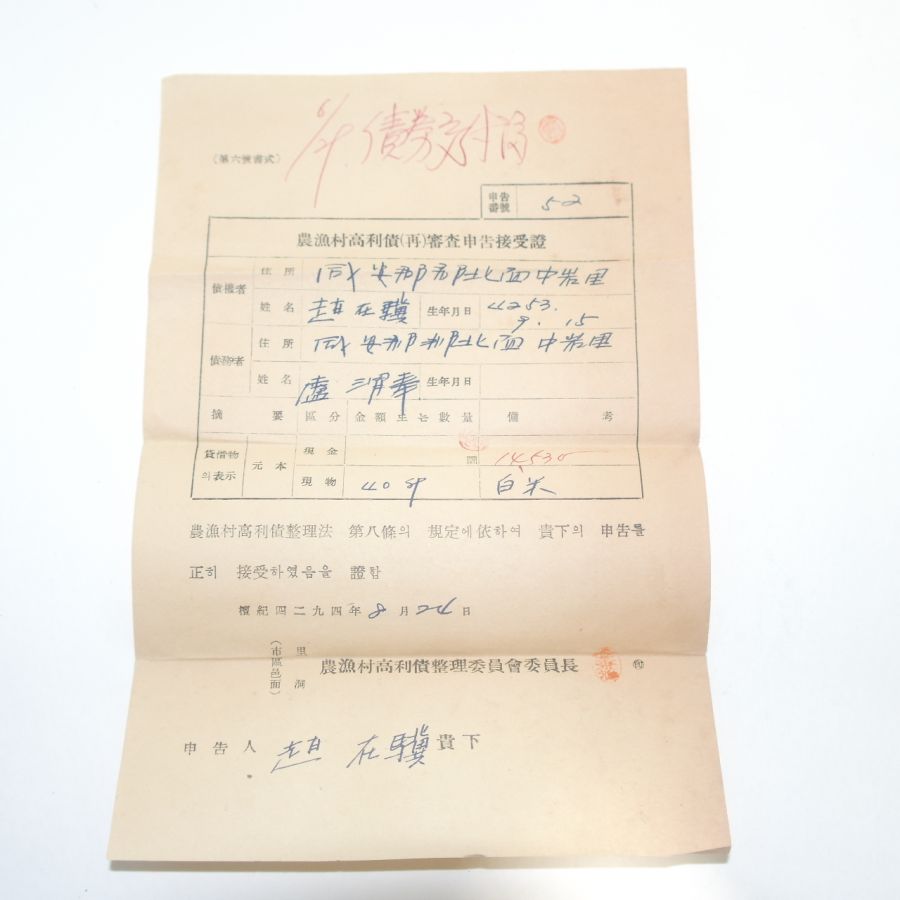 6/4. 債券交付濟
(第六號書式)
申告番號 52
農漁村高利債(再)審査申告接受證
債權者 住所 咸安郡郡北面中岩里
姓名 趙在驥 生年月日 4253. 9. 15
債務者 住所 咸安郡郡北面中岩里
姓名 盧 奉 生年月日
摘要 區分 金額또는數量 備考
貸借物의表示 元本 現金 圜 14,530
現物 40 白米
農漁村高利債整理法 第八條의 規定에依하여 貴下의 申告를
正히 接受하였음을 證함
檀紀四二九四年 8 月 24 日
(市區邑面) 里洞 農漁村高利債整理委員會委員長 ㊞
申告人 趙在驥 貴下